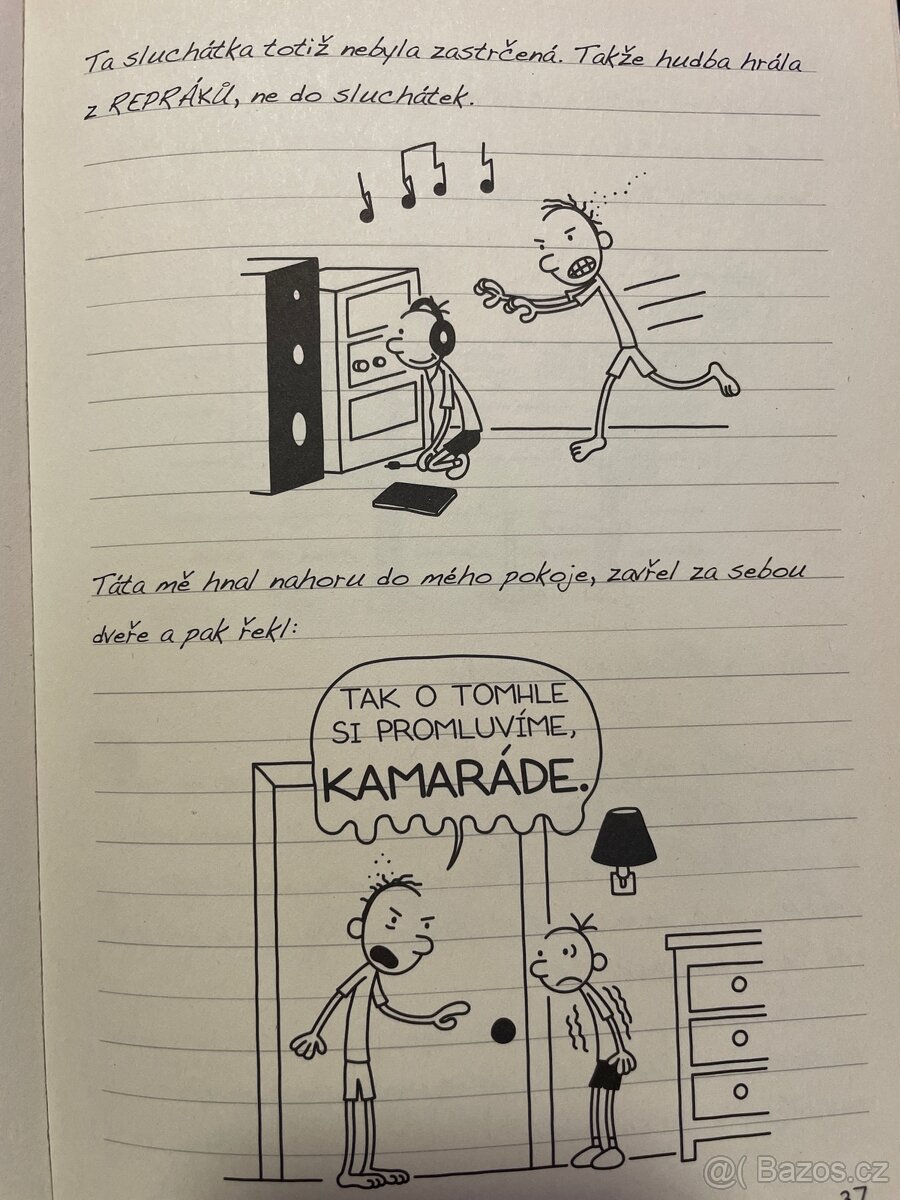 Ta sluchátka totiž nebyla zastrčená. Takže hudba hrála
z REPRÁKŮ, ne do sluchátek.
Táta mě hnal nahoru do mého pokoje, zavřel za sebou
dveře a pak řekl:
TAK O TOMHLE
SI PROMLUVÍME,
KAMARÁDE.
@( Bazos.cz
37